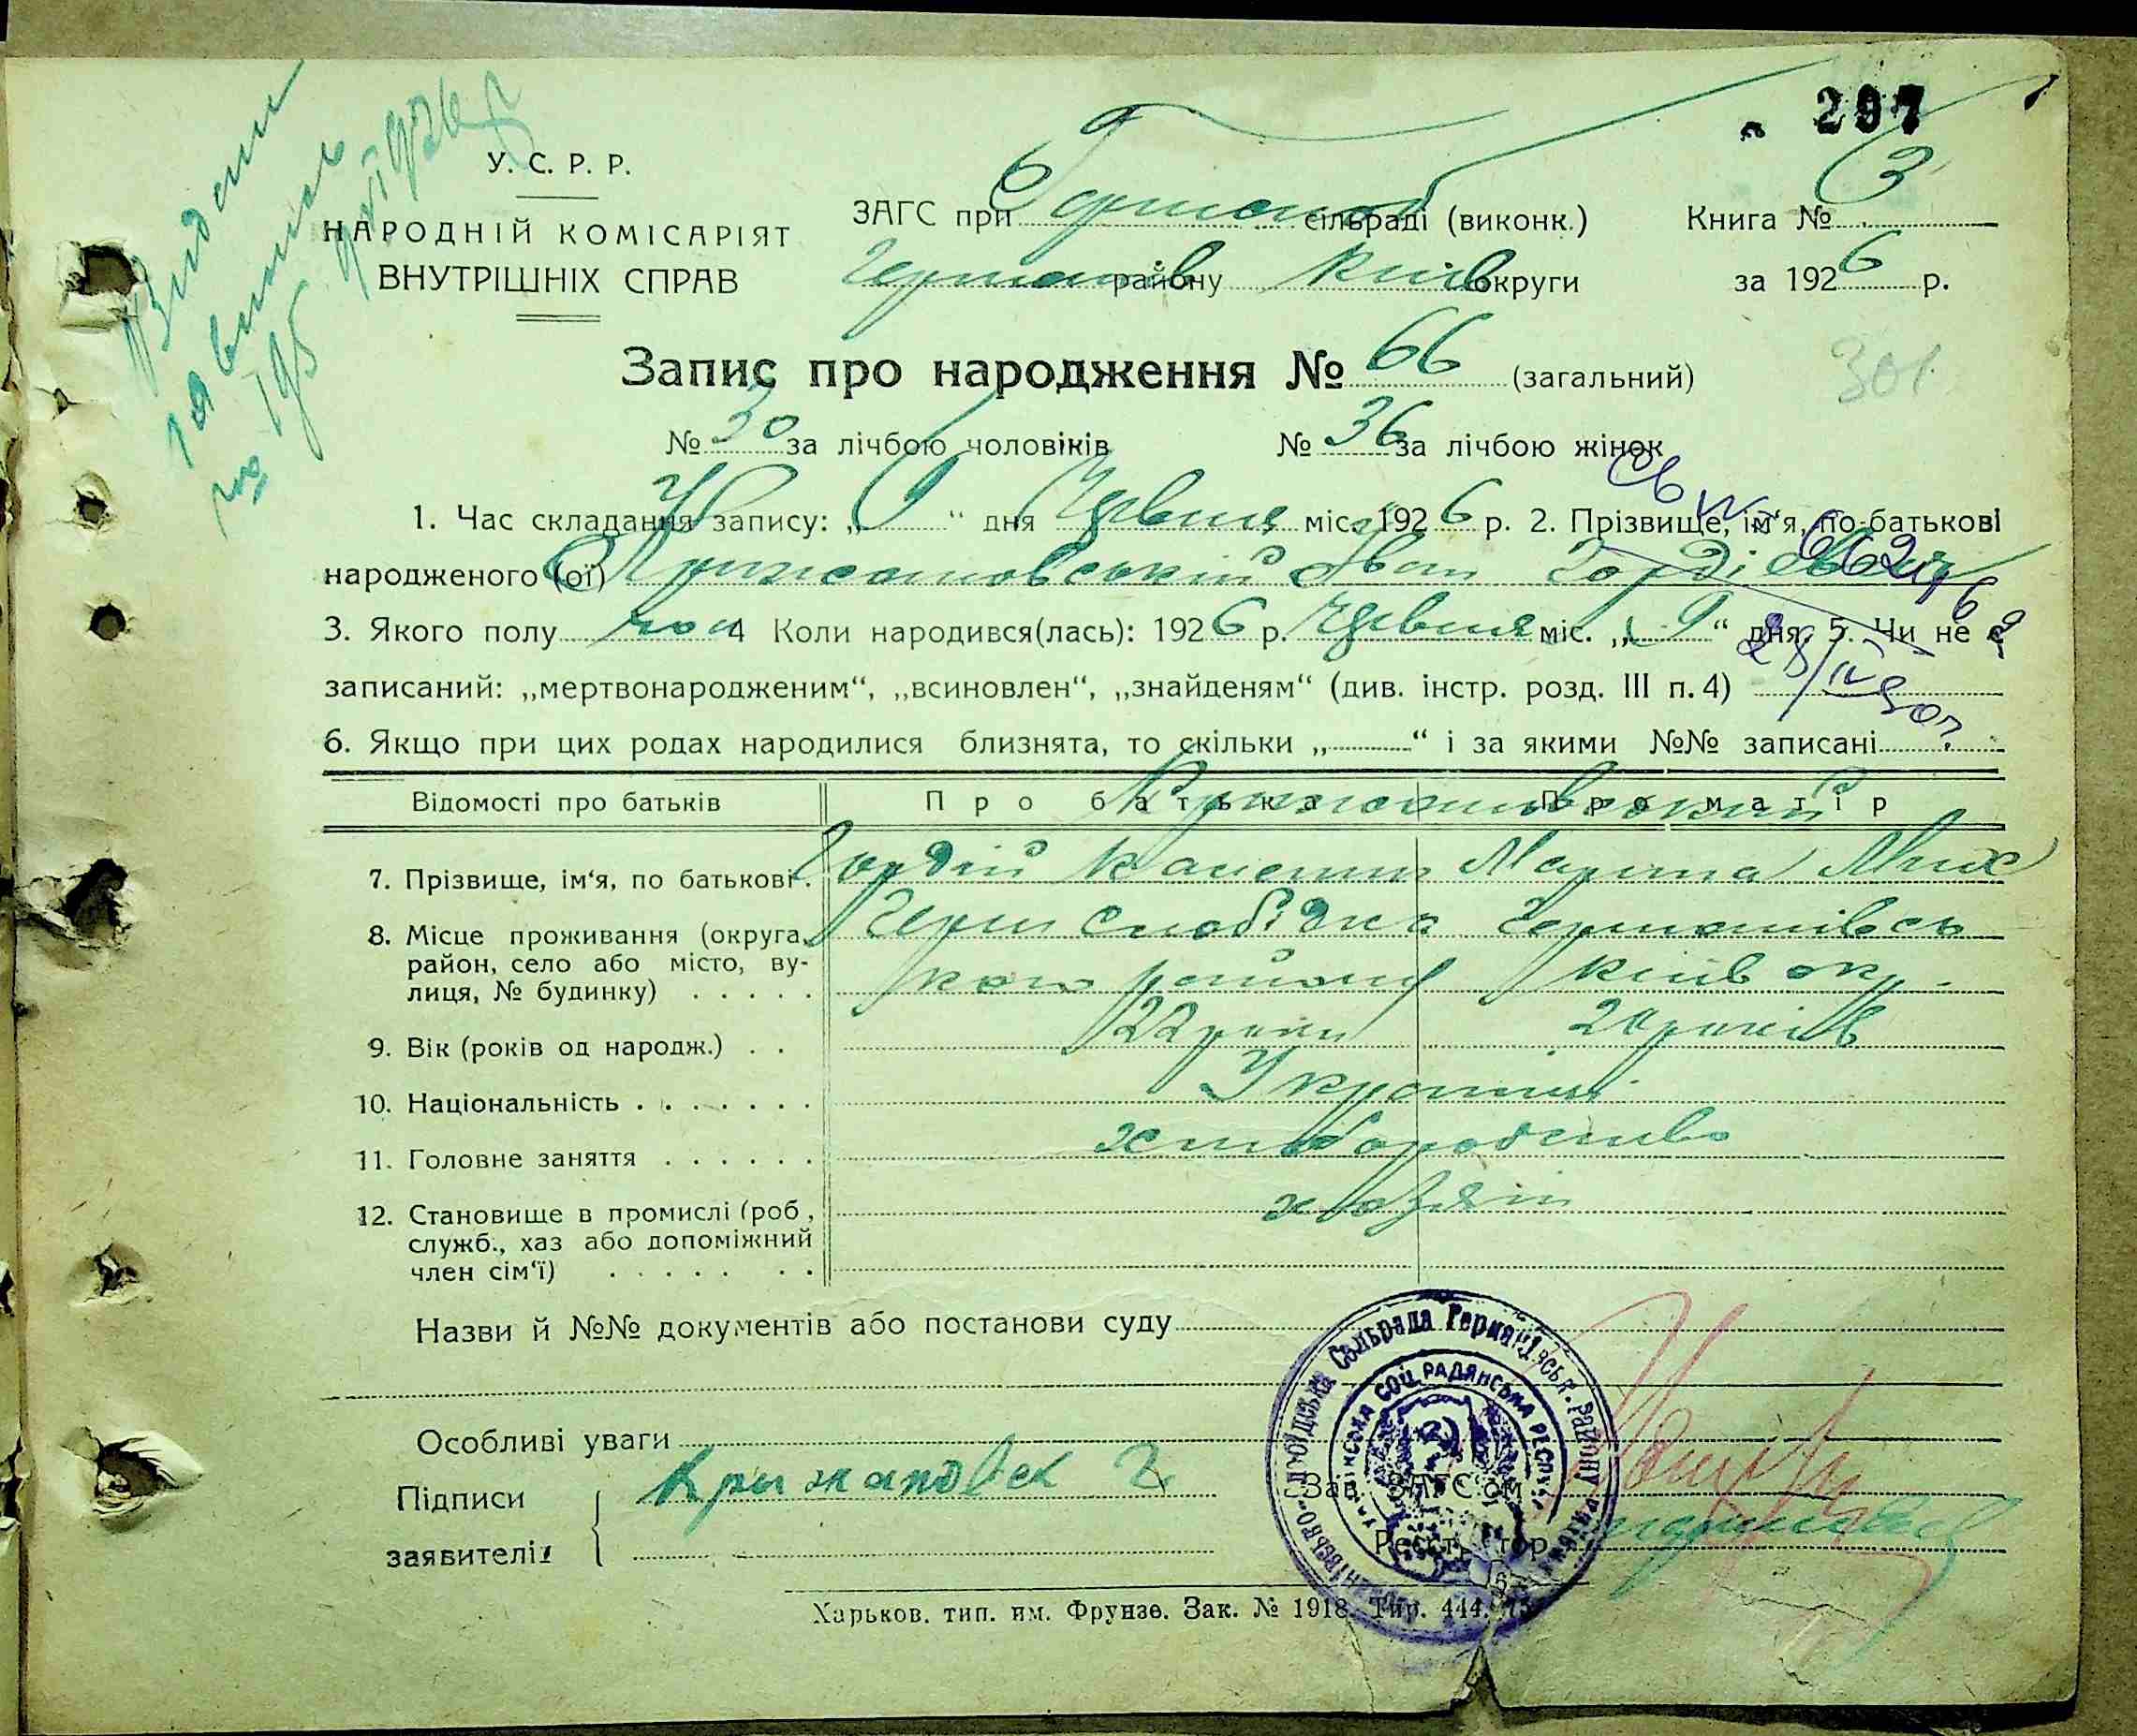 297
У. С. Р. Р.
НАРОДНІЙ КОМІСАРІЯТ
ВНУТРІШНІХ СПРАВ
ЗАГС при сільраді (виконк.) Книга № 3
району Київ округи за 1926 р.
Запис про народження № 66 (загальний)
301
№ 30 за лічбою чоловіків № 36 за лічбою жінок
1. Час складання запису: „ 9 “ дня Червня міс. 1926 р. 2. Прізвище, ім‘я, по-батькові
народженого (ої) Крижановський Іван Гордієвич
3. Якого полу чол 4 Коли народився(лась): 1926 р. Червня міс. „ 9 “ дня, 5. Чи не є
записаний: „мертвонародженим“, „всиновлен“, „знайденям“ (див. інстр. розд. III п. 4)
6. Якщо при цих родах народилися близнята, то скільки „ “ і за якими №№ записані
Відомості про батьків Про батька Про матір
Крижановський
7. Прізвище, ім‘я, по батькові Гордій Марина Мих
8. Місце проживання (округа, Герм Слобідка Германівсь
район, село або місто, ву- кого району Київ окр.
лиця, № будинку)
9. Вік (років од народж.) 22 роки 20 років
10. Національність Українці
11. Головне заняття хліборобство
12. Становище в промислі (роб, хазяїн
служб., хаз або допоміжний
член сім‘ї)
Назви й №№ документів або постанови суду
Особливі уваги
Підписи Крижановск Г Зав. ЗАГС‘ом
заявителів Реєстратор
Харьков. тип. им. Фрунзе. Зак. № 1918. Тир. 444.